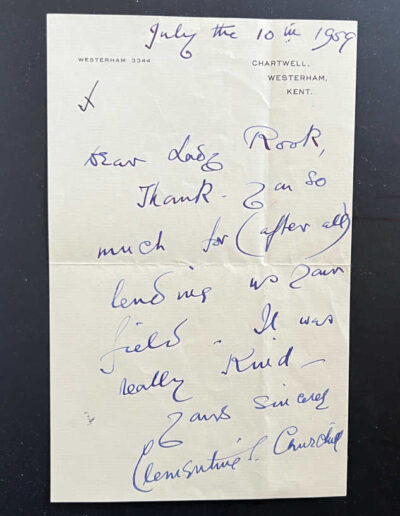 July the 10th 1959
WESTERHAM 3344
CHARTWELL,
WESTERHAM,
KENT.
x
Dear Lady Rook,
Thank you so
much for (after all)
lending us your
field. It was
really Kind —
Yours sincerely
Clementine S. Churchill